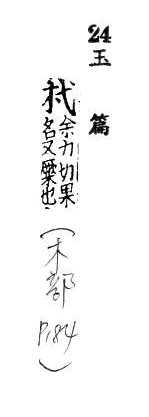 24玉篇
杙余力切果
名又糜也
(木部
P.184)